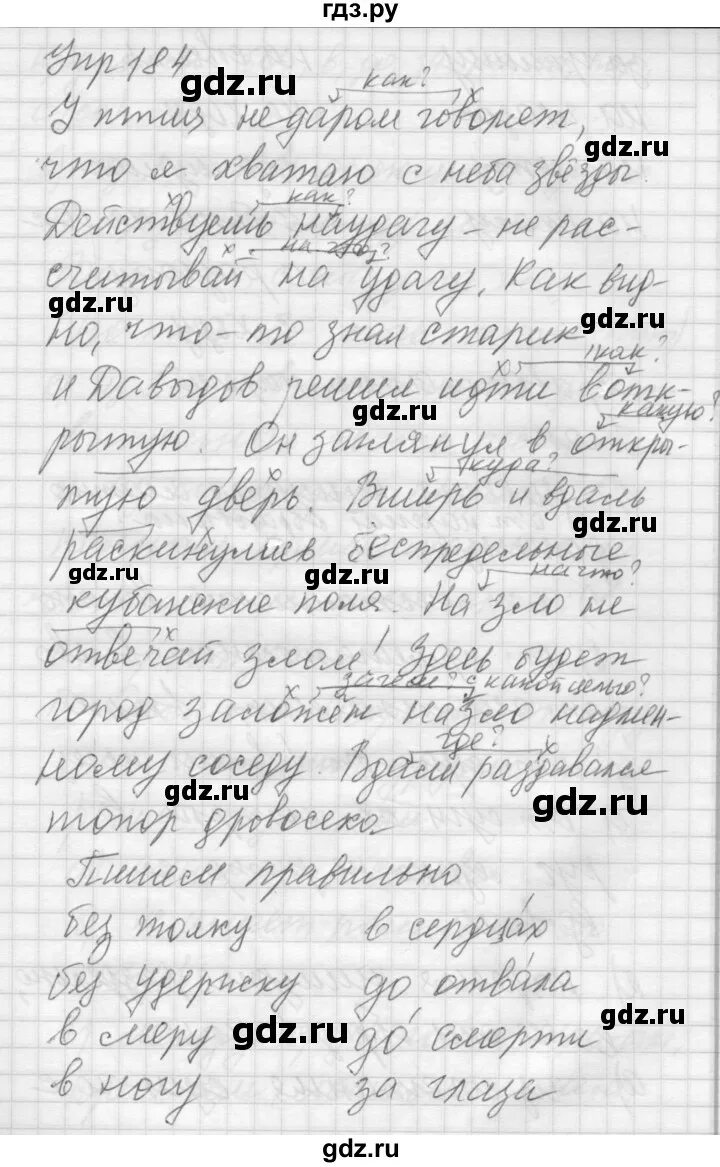 гдз.ру
Упр 184
gdz.ru
как?
У птиц недаром говорят,
gdz.ru
что я хватаю с неба звёзды.
gdz.ru
как?
Действуешь наудачу – не рас-
gdz.ru
на что?
считывай на удачу. Как вид-
gdz.ru
gdz.ru
но, что-то знал старик
как?
и Давыдов решил идти в отк-
gdz.ru
какую?
рытую. Он заглянул в откры-
куда?
тую дверь. Вширь и вдаль
gdz.ru
раскинулись беспредельные
gdz.ru
gdz.ru
на что?
кубанские поля. На зло не
отвечай злом! Здесь будет
зачем? с какой целью?
город заложен назло надмен-
где?
ному соседу. Вдали раздавался
gdz.ru
gdz.ru
топор дровосека
Пишем правильно
без толку в сердца́х
без удержу до отва́ла
gdz.ru
gdz.ru
в меру до смерти
в ногу за глаза
gdz.ru